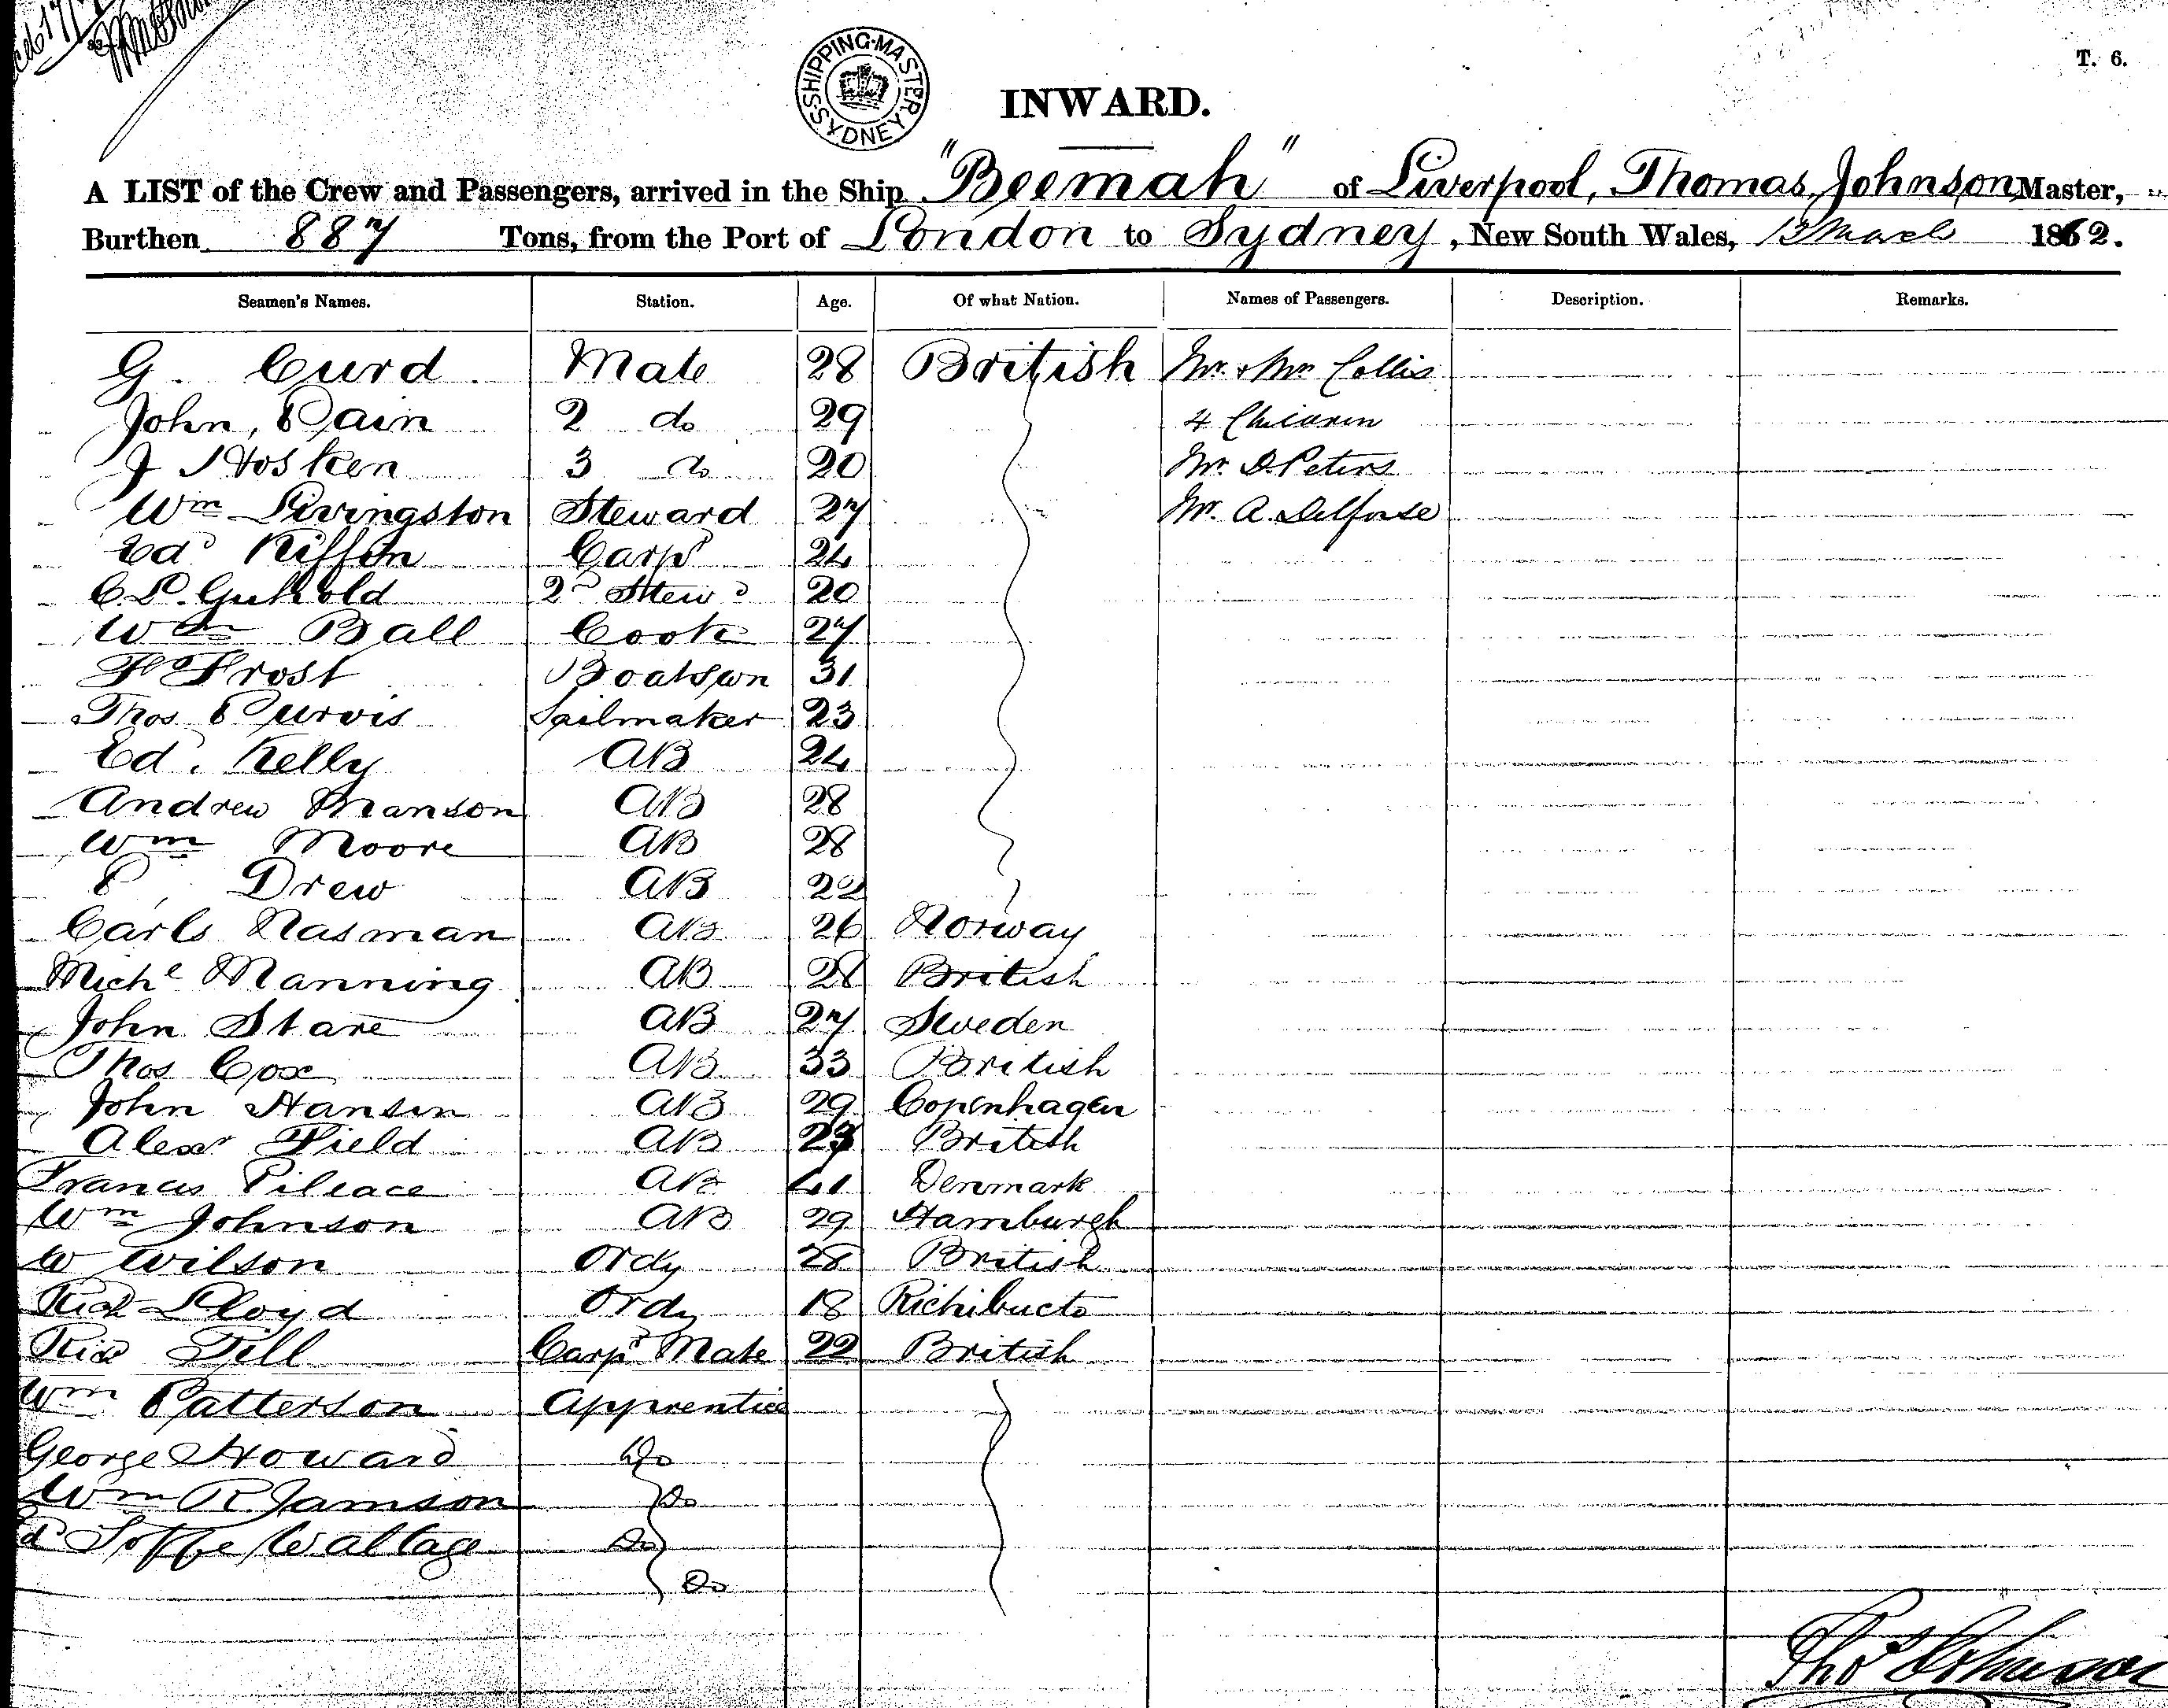 T. 6.
SHIPPING MASTER SYDNEY
INWARD.
A LIST of the Crew and Passengers, arrived in the Ship "Beemah" of Liverpool, Thomas Johnson Master,
Burthen 887 Tons, from the Port of London to Sydney, New South Wales, 1862.
Seamen's Names. Station. Age. Of what Nation. Names of Passengers. Description. Remarks.
G. Curd Mate 28 British Mr & Mrs Collis
John Pain 2 do 29 4 Children
J Hosken 3 do 20 Mr. D. Peters
Wm Livingston Steward 27 Mr. A.
Ed Kiffin Carpr 24
C.P. 2d Stewd 20
Wm Ball Cook 27
Frost Boatswn 31
Thos Purvis Sailmaker 23
Ed. Kelly AB 24
Andrew Manson AB 28
Wm Moore AB 28
P. Drew AB 22
Carls Nasman AB 26 Norway
Michl Manning AB British
John Stare AB 27 Sweden
Thos Cox AB 33 British
John Hansen AB 29 Copenhagen
Alexr Field AB British
Francis AB 41 Denmark
Wm Johnson AB 29 Hamburgh
W Wilson Ordy 28 British
Richd Lloyd Ordy 18 Richibucto
Richd Tell Carpr Mate 22 British
Wm Patterson Apprentice
George Howard Do
Wm R. Jamson Do
Wattage Do
Do
Thos Johnson